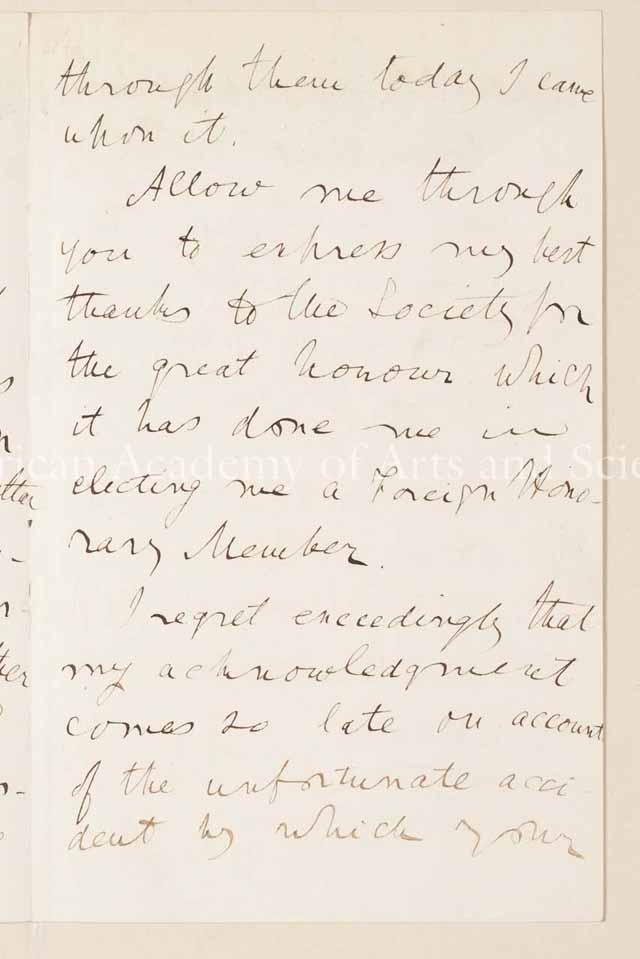 through them today I came
upon it.
Allow me through
you to express my best
thanks to the Society for
the great honour which
it has done me in
electing me a Foreign Hono-
rary Member.
I regret exceedingly that
my acknowledgment
comes so late on account
of the unfortunate acci-
dent by which your